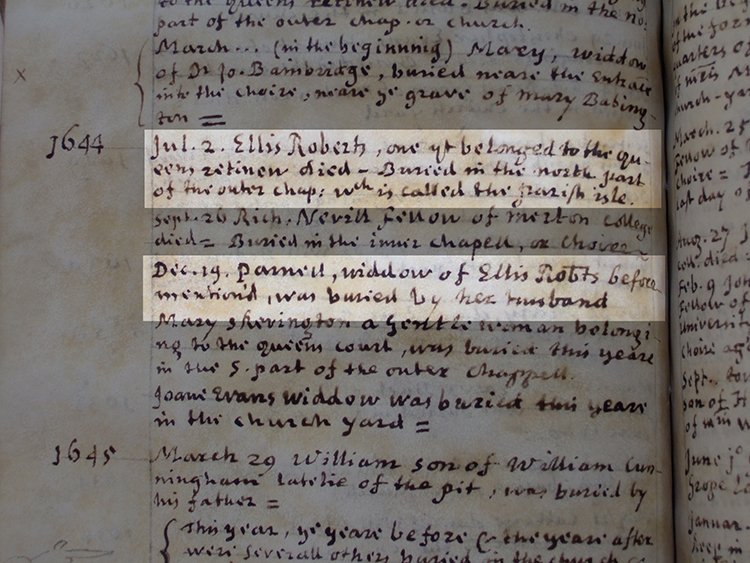 to the queens retinew died. Buried in the no:
part of the outer chap. or church.
March... (in the beginning) Mary, widdow
of Dr Jo. Bambridge, buried neare the Entrāce
into the choire, neare ye grave of Mary Babing-
x
ton =
1644
Jul. 2. Ellis Roberts, one yt belonged to the qu-
eens retinew died - Buried in the north part
of the outer chap: wch is called the parish isle.
Sept. 26 Rich. Nevill fellow of merton college
died = Buried in the inner chapell, or choire
Dec. 19. Parnell, widdow of Ellis Robts before
mentiond, was buried by her husband
Mary Skevington a Gentlewoman belongi-
ng to the queens court, was buried this yeare
in the S. part of the outer chappell.
Joane Evans widdow was buried this yeare
in the church yard =
1645
March 29 William son of William Cun-
ninghame latelie of the pit, was buried by
his father =
This year, ye yeare before & the yeare after
were severall others buried in the church
of the for
quarters o
church-yar
March. 25
fellow of
choire =
last day o
Aug. 27
died
Feb. 9
fellow of
universit
choire
Sept.
son of
of
June
Januar